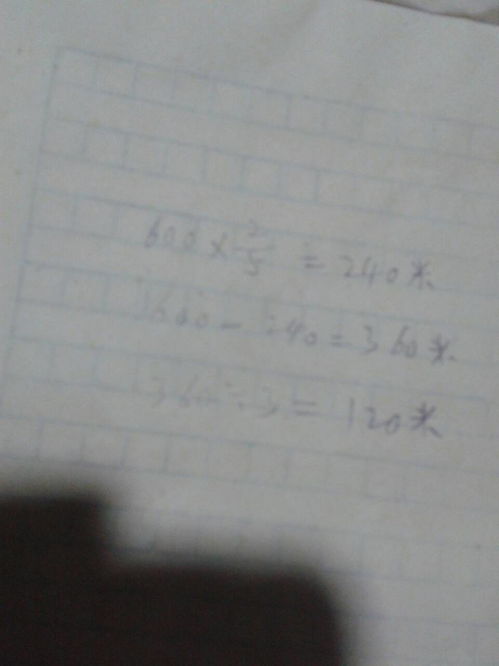 600×2/5=240米
600-240=360米
360÷3=120米